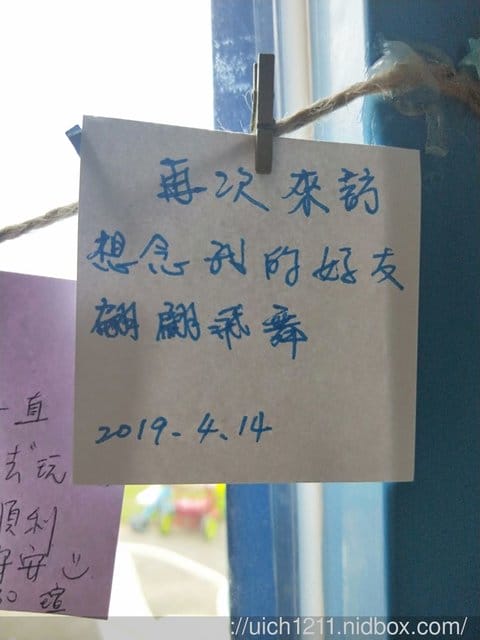 再次來訪
想念我的好友
翩翩飛舞
2019.4.14
一直
去玩
順利
平安
瑄
://uich1211.nidbox.com/